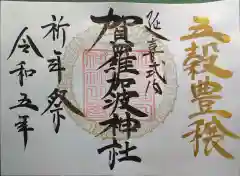 五穀豊穣
延喜式内
賀羅加波神社
祈年祭
令和五年